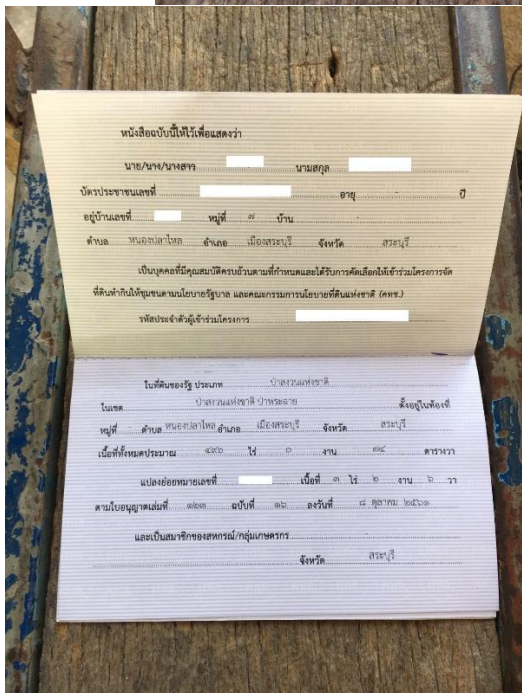 หนังสือฉบับนี้ให้ไว้เพื่อแสดงว่า
นาย/นาง/นางสาว นามสกุล
บัตรประชาชนเลขที่ อายุ - ปี
อยู่บ้านเลขที่ หมู่ที่ ๗ บ้าน -
ตำบล หนองปลาไหล อำเภอ เมืองสระบุรี จังหวัด สระบุรี
เป็นบุคคลที่มีคุณสมบัติครบถ้วนตามที่กำหนดและได้รับการคัดเลือกให้เข้าร่วมโครงการจัด
ที่ดินทำกินให้ชุมชนตามนโยบายรัฐบาล และคณะกรรมการนโยบายที่ดินแห่งชาติ (คทช.)
รหัสประจำตัวผู้เข้าร่วมโครงการ
ในที่ดินของรัฐ ประเภท ป่าสงวนแห่งชาติ
ในเขต ป่าสงวนแห่งชาติ ป่าพระฉาย ตั้งอยู่ในท้องที่
หมู่ที่ - ตำบล หนองปลาไหล อำเภอ เมืองสระบุรี จังหวัด สระบุรี
เนื้อที่ทั้งหมดประมาณ ไร่ ๐ งาน ตารางวา
แปลงย่อยหมายเลขที่ เนื้อที่ ๓ ไร่ ๒ งาน ๖ วา
ตามใบอนุญาตเล่มที่ ๑๒๓ ฉบับที่ ๑๖ ลงวันที่ ๘ ตุลาคม ๒๕๖๑
และเป็นสมาชิกของสหกรณ์/กลุ่มเกษตรกร -
จังหวัด สระบุรี